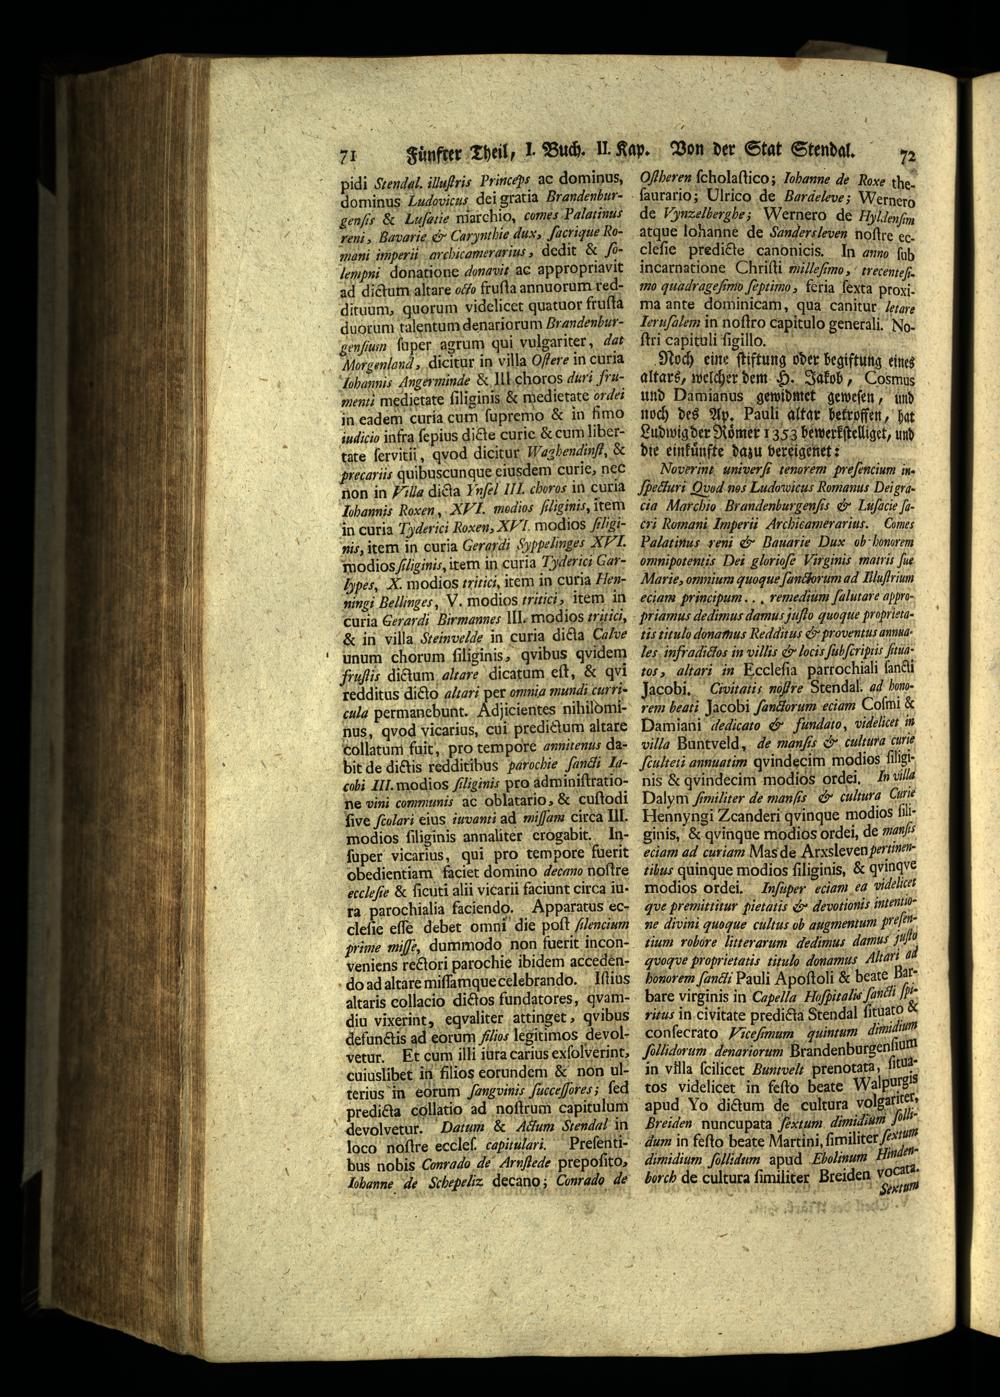 71 Fünfter Theil, I. Buch. II. Kap. Von der Stat Stendal. 72
pidi Stendal. illuſtris Princeps ac dominus,
dominus Ludovicus dei gratia Brandenbur-
genſis & Luſatie marchio, comes Palatinus
reni, Bavarie & Carynthie dux, ſacrique Ro-
mani imperii archicamerarius, dedit & ſo-
lempni donatione donavit ac appropriavit
ad dictum altare octo fruſta annuorum red-
dituum, quorum videlicet quatuor fruſta
duorum talentum denariorum Brandenbur-
genſium ſuper agrum qui vulgariter, dat
Morgenland, dicitur in villa Oſtere in curia
Iohannis Angerminde & III choros duri fru-
menti medietate ſiliginis & medietate ordei
in eadem curia cum ſupremo & in fimo
iudicio infra ſepius dicte curie & cum liber-
tate ſervitii, qvod dicitur Waghendinſt, &
precariis quibuscunque eiusdem curie, nec
non in Villa dicta Ynſel III. choros in curia
Iohannis Roxen, XVI. modios ſiliginis, item
in curia Tyderici Roxen, XVI. modios ſiligi-
nis, item in curia Gerardi Syppelinges XVI.
modios ſiliginis, item in curia Tyderici Gar-
lypes, X. modios tritici, item in curia Hen-
ningi Bellinges, V. modios tritici, item in
curia Gerardi Birmannes III. modios tritici,
& in villa Steinvelde in curia dicta Calve
unum chorum ſiliginis, qvibus qvidem
fruſtis dictum altare dicatum eſt, & qvi
redditus dicto altari per omnia mundi curri-
cula permanebunt. Adjicientes nihilomi-
nus, qvod vicarius, cui predictum altare
collatum fuit, pro tempore annitenus da-
bit de dictis redditibus parochie ſancti Ia-
cobi III. modios ſiliginis pro adminiſtratio-
ne vini communis ac oblatario, & cuſtodi
ſive ſcolari eius iuvanti ad miſſam circa III.
modios ſiliginis annaliter erogabit. In-
ſuper vicarius, qui pro tempore fuerit
obedientiam faciet domino decano noſtre
eccleſie & ſicuti alii vicarii faciunt circa iu-
ra parochialia faciendo. Apparatus ec-
cleſie eſſe debet omni die poſt ſilencium
prime miſſe, dummodo non fuerit incon-
veniens rectori parochie ibidem acceden-
do ad altare miſſamque celebrando. Iſtius
altaris collacio dictos fundatores, qvam-
diu vixerint, eqvaliter attinget, qvibus
defunctis ad eorum filios legitimos devol-
vetur. Et cum illi iura carius exſolverint,
cuiuslibet in filios eorundem & non ul-
terius in eorum ſangvinis ſucceſſores; ſed
predicta collatio ad noſtrum capitulum
devolvetur. Datum & Actum Stendal in
loco noſtre eccleſ. capitulari. Preſenti-
bus nobis Conrado de Arnſtede prepoſito,
Iohanne de Schepeliz decano; Conrado de
Oſtheren ſcholaſtico; Iohanne de Roxe the-
ſaurario; Ulrico de Bardeleve; Wernero
de Vynzelberghe; Wernero de Hyldenſim
atque Iohanne de Sandersleven noſtre ec-
cleſie predicte canonicis. In anno ſub
incarnatione Chriſti milleſimo, trecenteſi-
mo quadrageſimo ſeptimo, feria ſexta proxi-
ma ante dominicam, qua canitur letare
Ieruſalem in noſtro capitulo generali. No-
ſtri capituli ſigillo.
Noch eine ſtiftung oder begiftung eines
altars, welcher dem H. Jakob, Cosmus
und Damianus gewidmet geweſen, und
noch des Ap. Pauli altar betroffen, hat
Ludwig der Römer 1353 bewerkſtelliget, und
die einkünfte dazu vereigenet:
Noverint univerſi tenorem preſencium in-
ſpecturi Qvod nos Ludowicus Romanus Dei gra-
cia Marchio Brandenburgenſis & Luſacie ſa-
cri Romani Imperii Archicamerarius. Comes
Palatinus reni & Bauarie Dux ob honorem
omnipotentis Dei glorioſe Virginis matris ſue
Marie, omnium quoque ſanctorum ad Illuſtrium
eciam principum... remedium ſalutare appro-
priamus dedimus damus juſto quoque proprieta-
tis titulo donamus Redditus & proventus annua-
les infradictos in villis & locis ſubſcriptis ſitua-
tos, altari in Eccleſia parrochiali ſancti
Jacobi. Civitatis noſtre Stendal. ad hono-
rem beati Jacobi ſanctorum eciam Coſmi &
Damiani dedicato & fundato, videlicet in
villa Buntveld, de manſis & cultura curie
ſculteti annuatim qvindecim modios ſiligi-
nis & qvindecim modios ordei. In villa
Dalym ſimiliter de manſis & cultura Curie
Hennyngi Zcanderi qvinque modios ſili-
ginis, & qvinque modios ordei, de manſis
eciam ad curiam Mas de Arxsleven pertinen-
tibus quinque modios ſiliginis, & qvinqve
modios ordei. Inſuper eciam ea videlicet
qve premittitur pietatis & devotionis intentio-
ne divini quoque cultus ob augmentum preſen-
tium robore litterarum dedimus damus juſto
quoqve proprietatis titulo donamus Altari ad
honorem ſancti Pauli Apoſtoli & beate Bar-
bare virginis in Capella Hoſpitalis ſancti ſpi-
ritus in civitate predicta Stendal ſituato &
conſecrato Viceſimum quintum dimidium
ſollidorum denariorum Brandenburgenſium
in villa ſcilicet Buntvelt prenotata, ſitua-
tos videlicet in feſto beate Walpurgis
apud Yo dictum de cultura volgariter,
Breiden nuncupata ſextum dimidium ſolli-
dum in feſto beate Martini, ſimiliter ſextum
dimidium ſollidum apud Ebolinum Hinden-
borch de cultura ſimiliter Breiden vocata.
Sextum